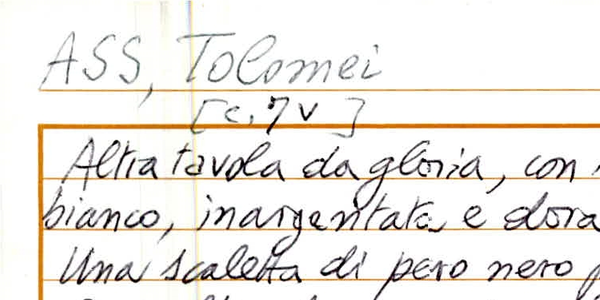 ASS, Tolomei
[c. 7v]
Altra tavola da gloria, con
bianco, inargentata e dora
Una scaletta di pero nero